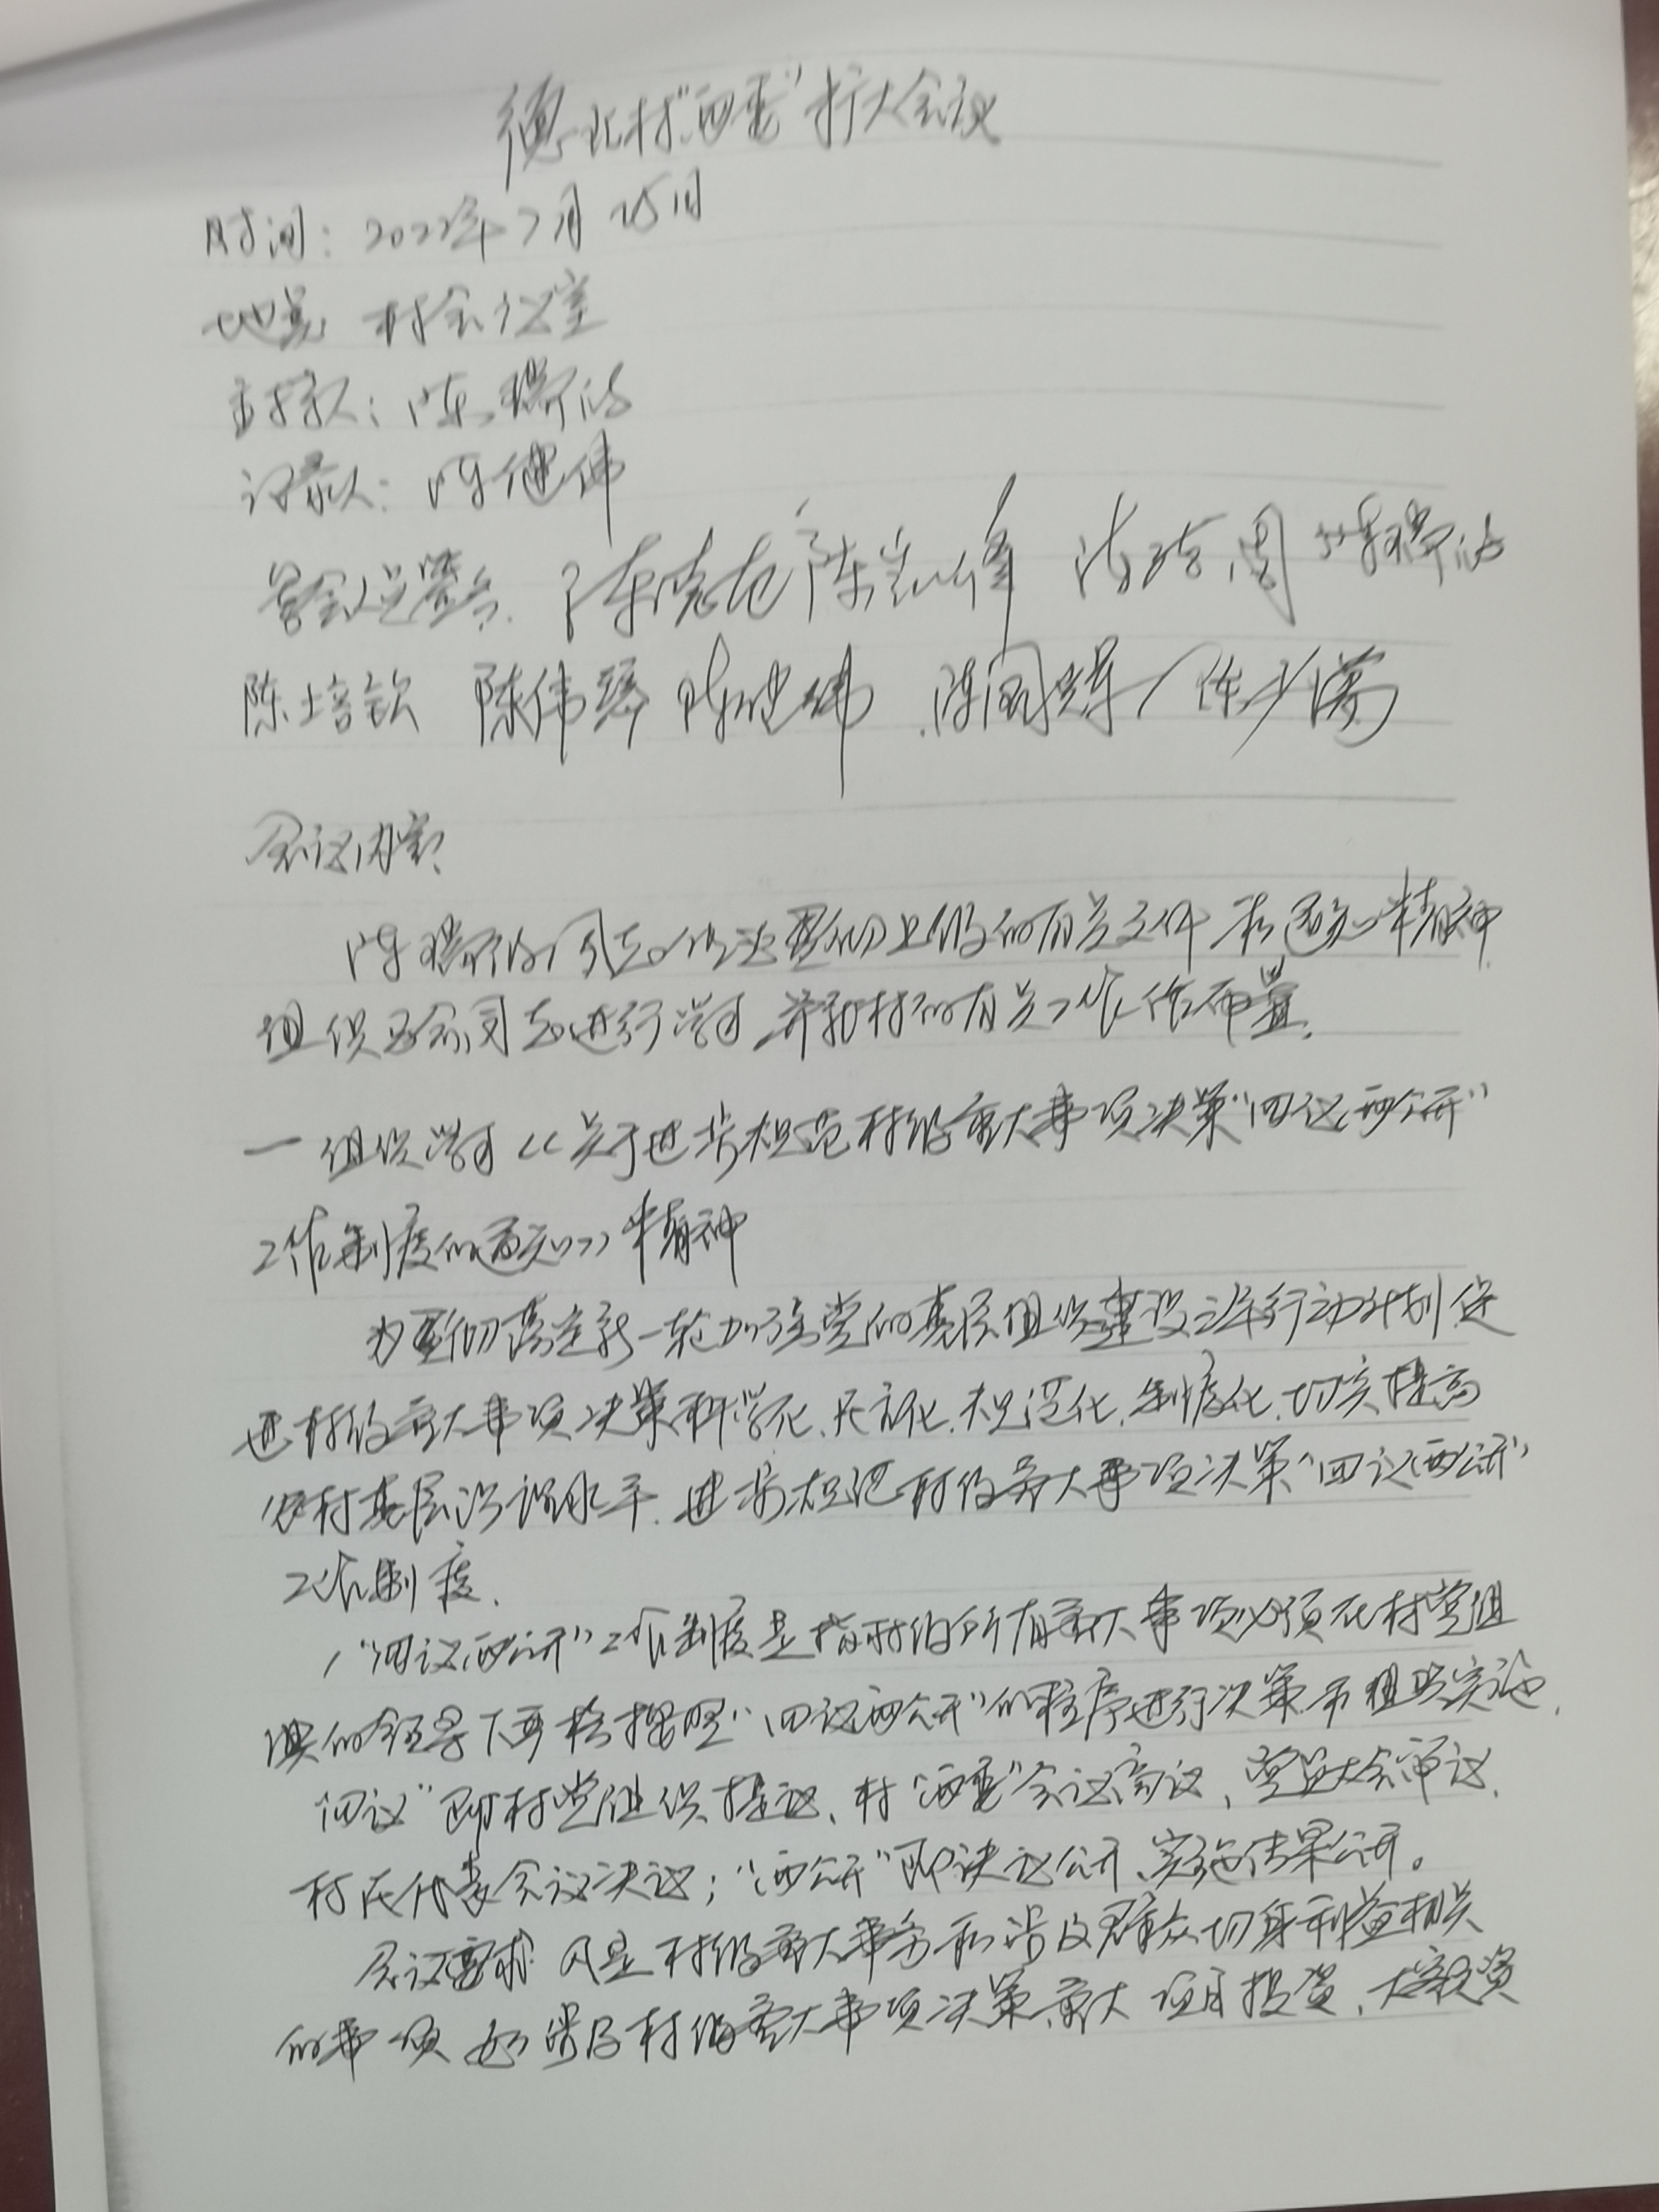 德北村“两委”扩大会议
时间：2022年7月25日
地点 村会议室
主持人：陈瑞
记录人：陈健伟
陈 陈 峰 陈 周 陈瑞
陈培钦 陈伟 陈健伟 陈国辉 陈少
会议内容：
陈瑞 同志传达贯彻上级的有关文件和通知精神
组织与会同志进行学习，并对村的有关工作作布置。
一 组织学习《关于进步规范村级重大事项决策“四议两公开”
工作制度的通知》精神
为贯彻落实新一轮加强党的基层组织建设三年行动计划 促
进村级重大事项决策科学化、民主化、规范化、制度化，切实提高
农村基层治理水平，进步规范村级重大事项决策“四议两公开”
工作制度。
1“四议两公开”工作制度是指村级所有重大事项必须在村党组
织的领导下严格按照“四议两公开”的程序进行决策和组织实施，
四议”即村党组织提议、村“两委”会议商议、党员大会审议、
村民代表会议决议；“两公开”即决议公开、实施结果公开。
会议要求 凡是村级重大事务和涉及群众切身利益相关
的事项 如涉及村级重大事项决策、重大项目投资、大额资